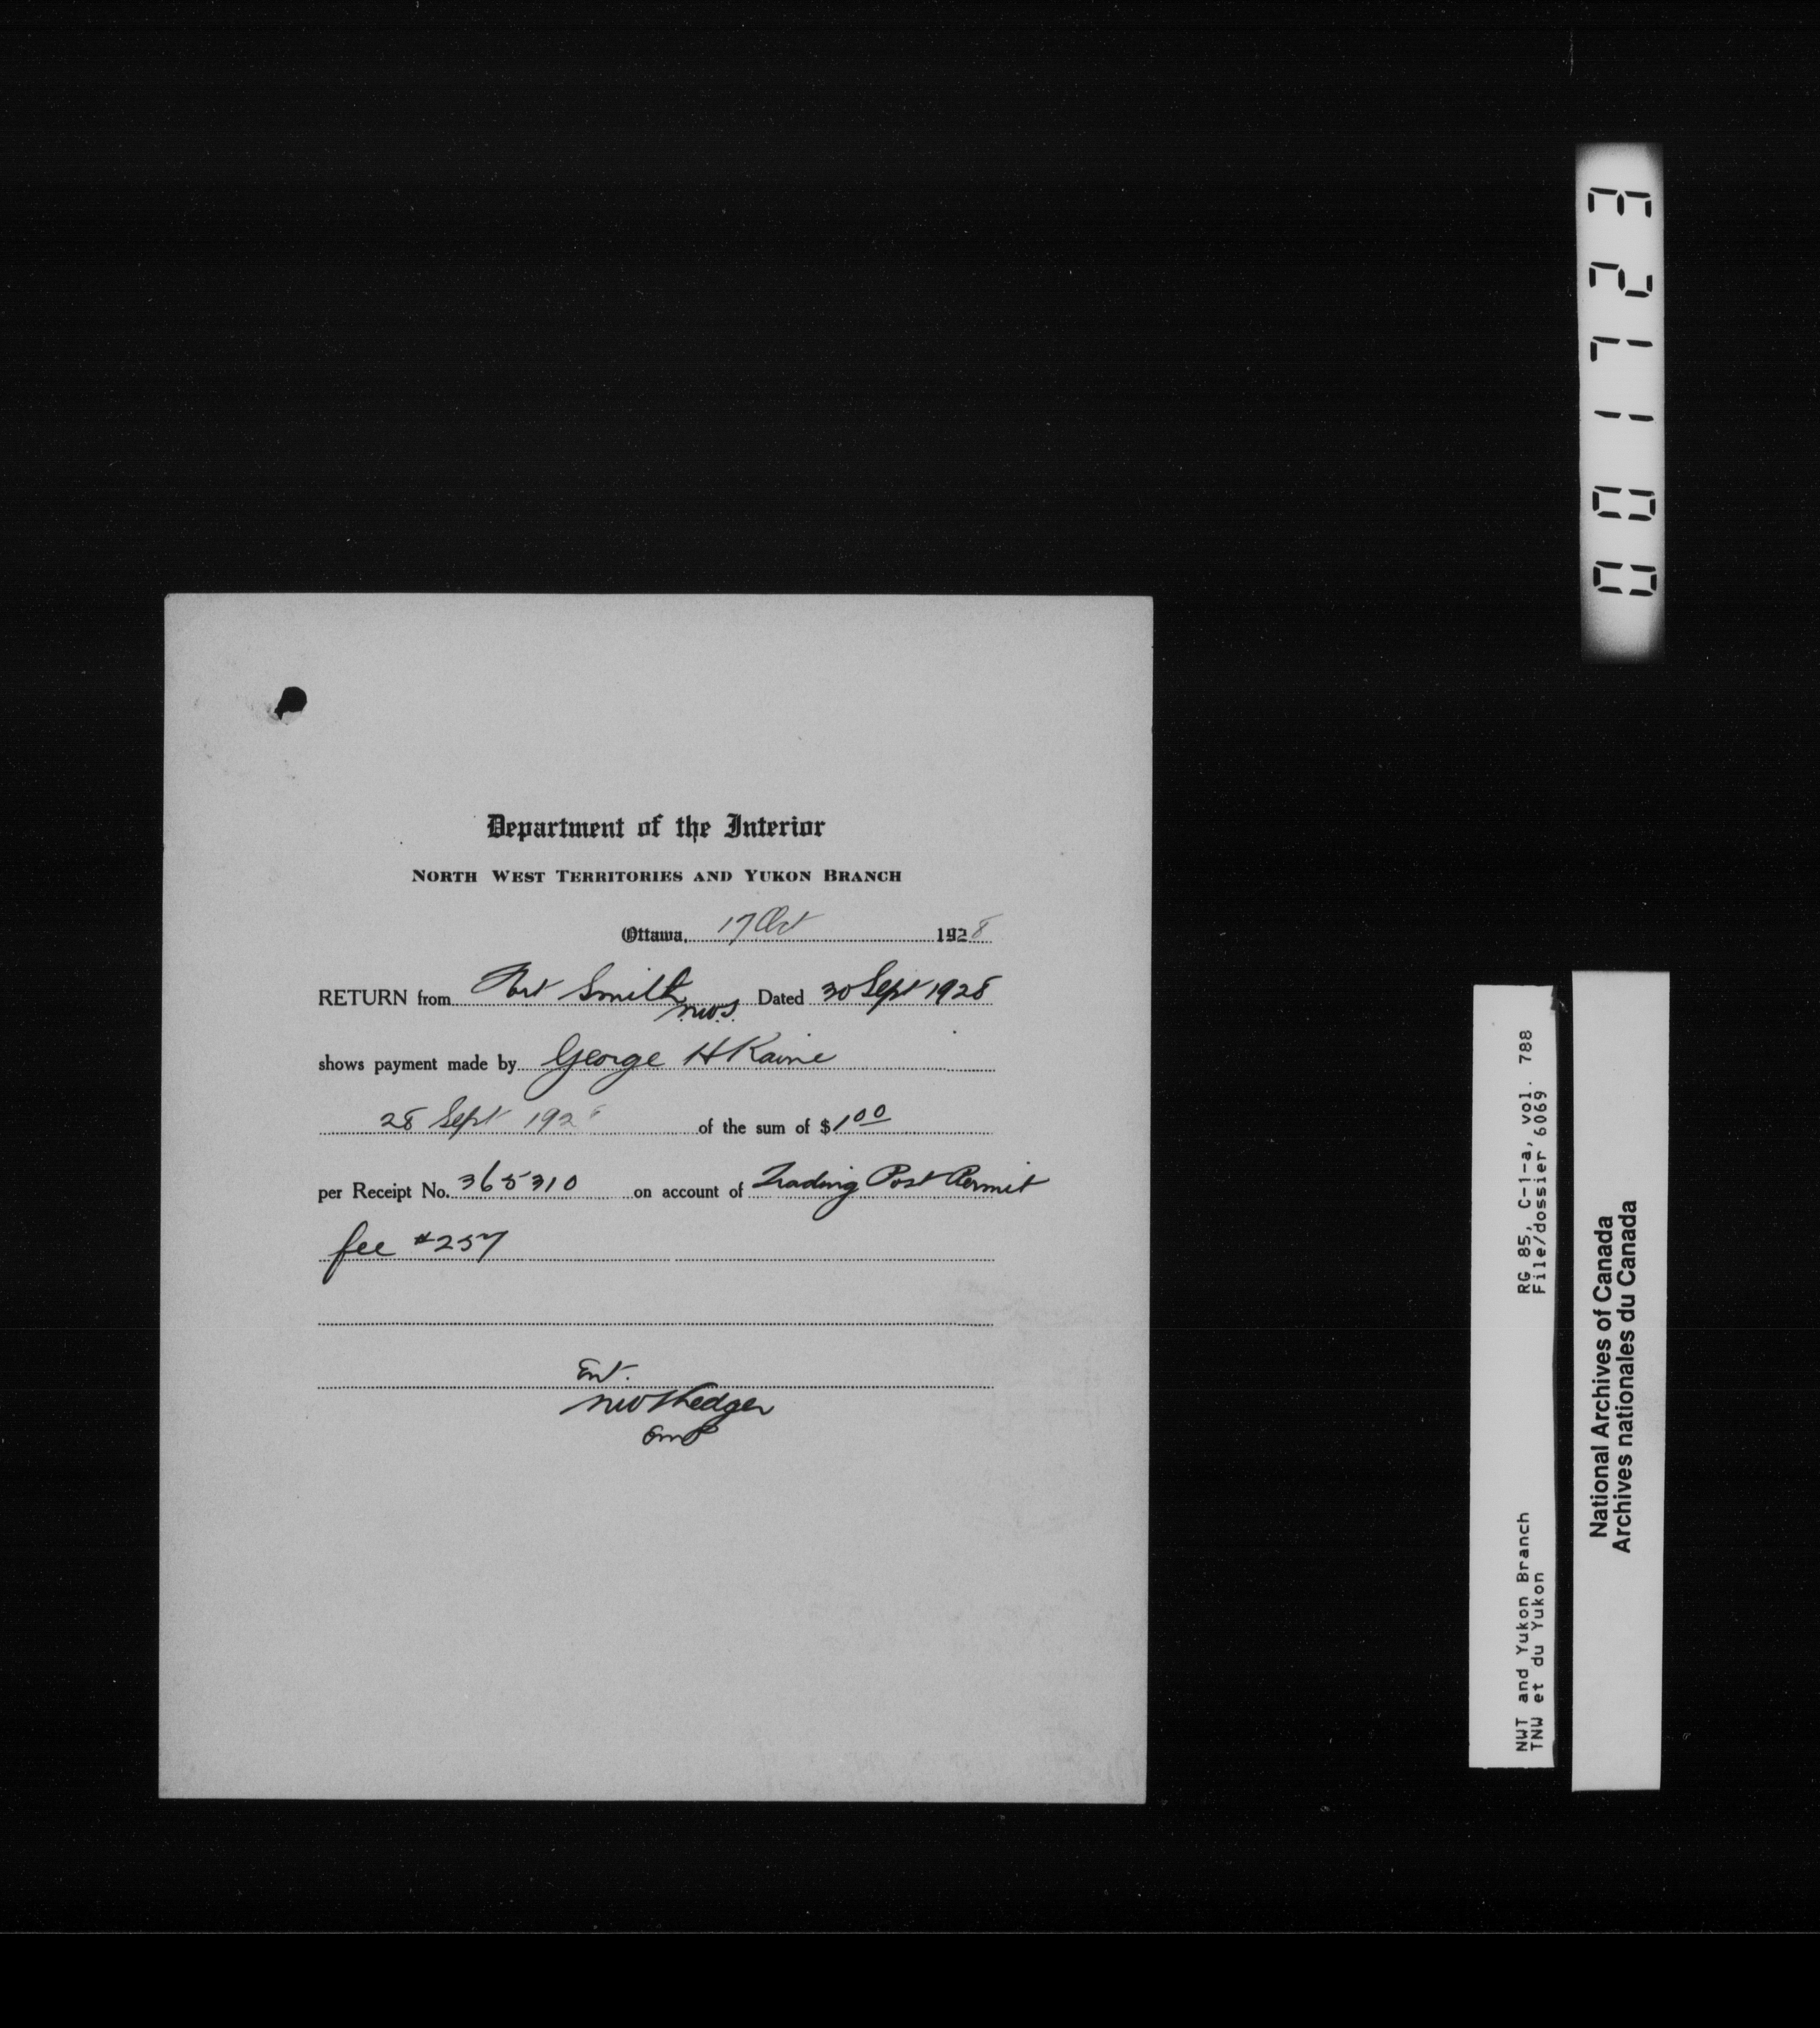 Department of the Interior
NORTH WEST TERRITORIES AND YUKON BRANCH
Ottawa, 17 Oct 1928
RETURN from Fort Smith Dated 30 Sept 1928
shows payment made by George H Kaine
28 Sept 1928 of the sum of $1 00
per Receipt No. 365310 on account of Trading Post Permit
fee #257
Ent.
001723
RG 85, C-1-a, vol. 788
File/dossier 6069
NWT and Yukon Branch
TNW et du Yukon
National Archives of Canada
Archives nationales du Canada